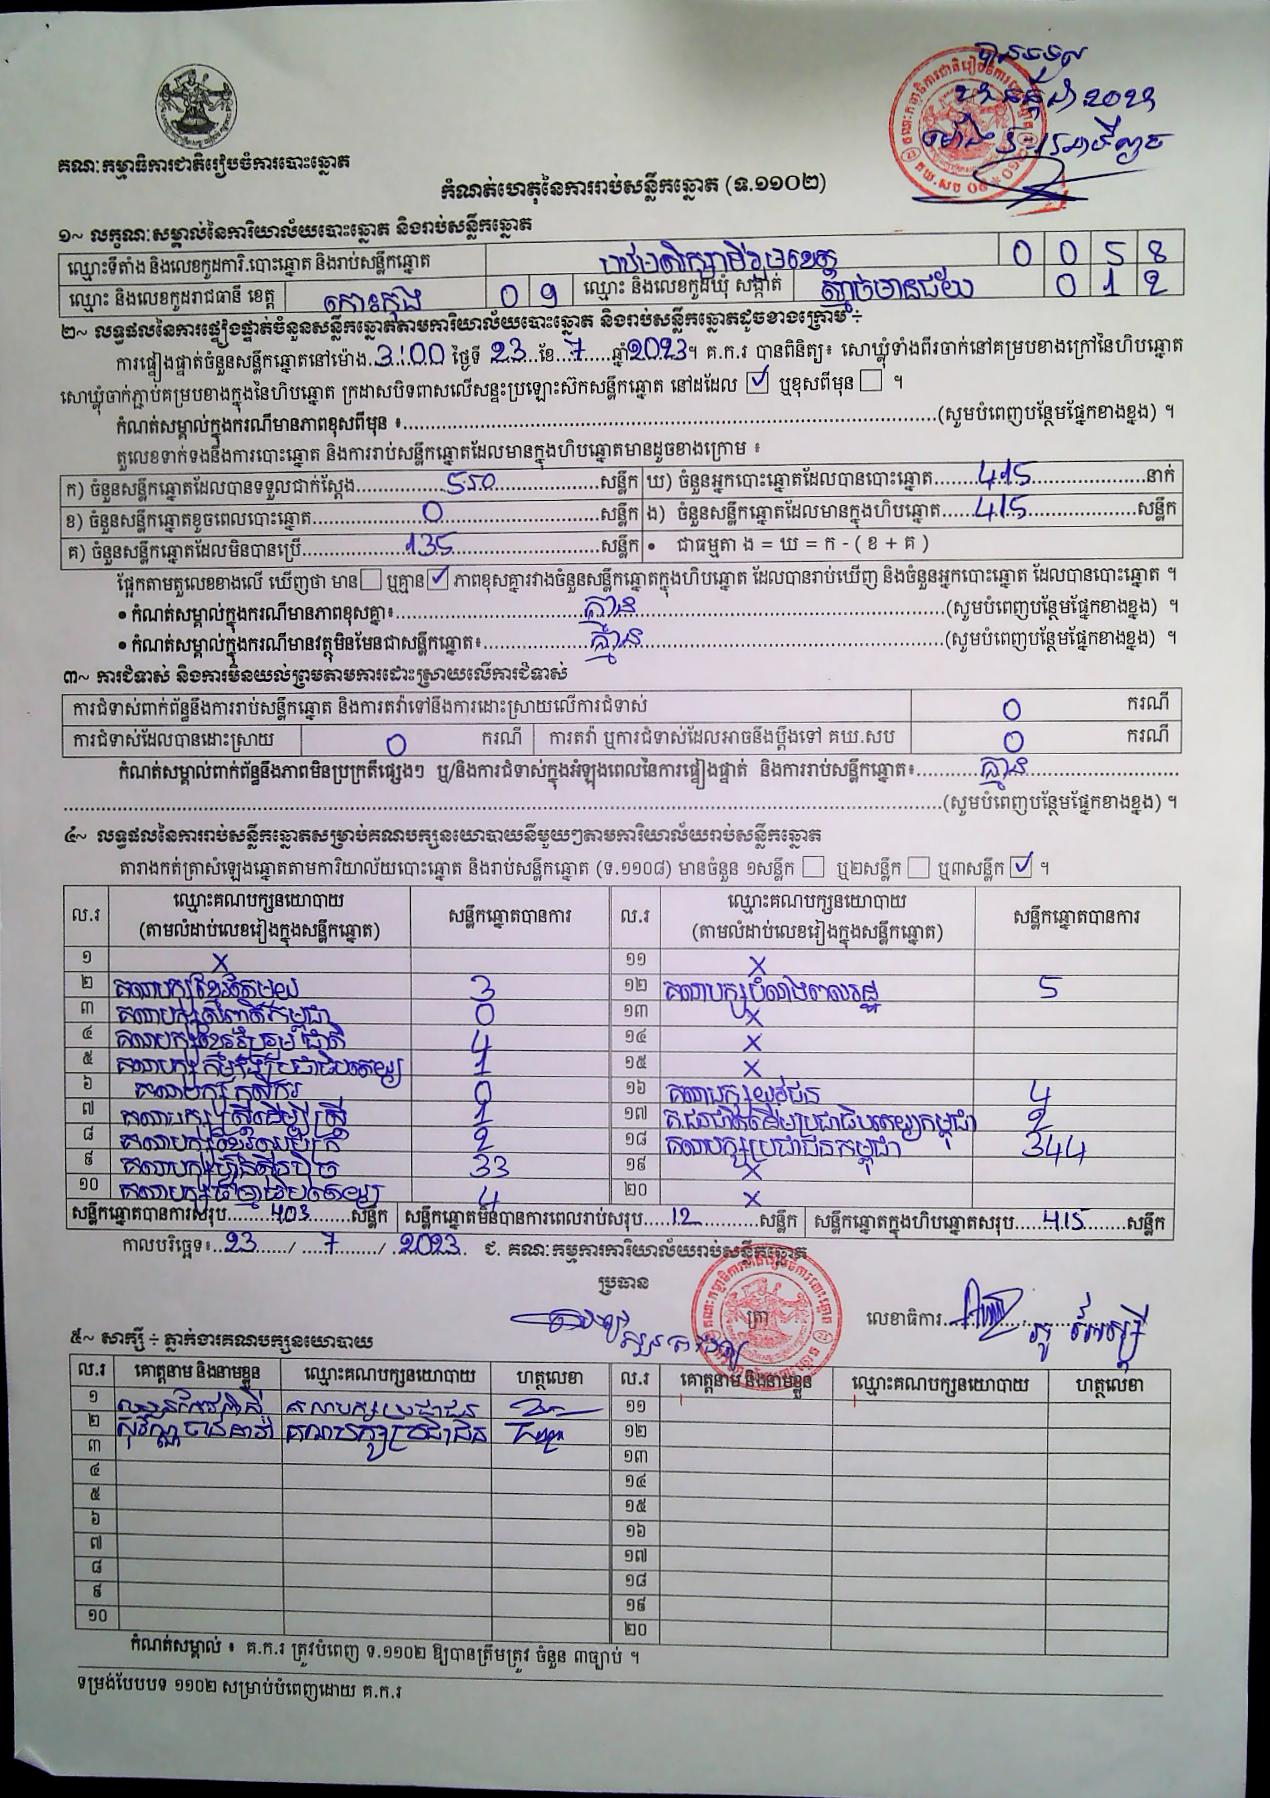 គណៈកម្មាធិការជាតិរៀបចំការបោះឆ្នោត
កំណត់ហេតុនៃការរាប់សន្លឹកឆ្នោត (ទ.១១០២)
១~ លក្ខណៈសម្គាល់នៃការិយាល័យបោះឆ្នោត និងរាប់សន្លឹកឆ្នោត
ឈ្មោះទីតាំង និងលេខកូដការិ.បោះឆ្នោត និងរាប់សន្លឹកឆ្នោត 0 0 5 8
ឈ្មោះ និងលេខកូដរាជធានី ខេត្ត កោះកុង 0 9 ឈ្មោះ និងលេខកូដឃុំ សង្កាត់ ស្មាច់មានជ័យ 0 1 2
២~ លទ្ធផលនៃការផ្ទៀងផ្ទាត់ចំនួនសន្លឹកឆ្នោតតាមការិយាល័យបោះឆ្នោត និងរាប់សន្លឹកឆ្នោតដូចខាងក្រោម ÷
ការផ្ទៀងផ្ទាត់ចំនួនសន្លឹកឆ្នោតនៅម៉ោង 3:00 ថ្ងៃទី 23 ខែ 7 ឆ្នាំ 2023។ គ.ក.រ បានពិនិត្យ៖ សោឃ្លុំទាំងពីរចាក់នៅគម្របខាងក្រៅនៃហិបឆ្នោត
សោឃ្លុំចាក់ភ្ជាប់គម្របខាងក្នុងនៃហិបឆ្នោត ក្រដាសបិទពាសលើសន្ទះប្រឡោះស៊កសន្លឹកឆ្នោត នៅដដែល ☑ ឬខុសពីមុន ☐ ។
កំណត់សម្គាល់ក្នុងករណីមានភាពខុសពីមុន ៖ (សូមបំពេញបន្ថែមផ្នែកខាងខ្នង) ។
តួលេខទាក់ទងនឹងការបោះឆ្នោត និងការរាប់សន្លឹកឆ្នោតដែលមានក្នុងហិបឆ្នោតមានដូចខាងក្រោម ៖
ក) ចំនួនសន្លឹកឆ្នោតដែលបានទទួលជាក់ស្តែង 550 សន្លឹក ឃ) ចំនួនអ្នកបោះឆ្នោតដែលបានបោះឆ្នោត 415 នាក់
ខ) ចំនួនសន្លឹកឆ្នោតខូចពេលបោះឆ្នោត 0 សន្លឹក ង) ចំនួនសន្លឹកឆ្នោតដែលមានក្នុងហិបឆ្នោត 415 សន្លឹក
គ) ចំនួនសន្លឹកឆ្នោតដែលមិនបានប្រើ 135 សន្លឹក • ជាធម្មតា ង = ឃ = ក - ( ខ + គ )
ផ្អែកតាមតួលេខខាងលើ ឃើញថា មាន ☐ ឬគ្មាន ☑ ភាពខុសគ្នារវាងចំនួនសន្លឹកឆ្នោតក្នុងហិបឆ្នោត ដែលបានរាប់ឃើញ និងចំនួនអ្នកបោះឆ្នោត ដែលបានបោះឆ្នោត ។
• កំណត់សម្គាល់ក្នុងករណីមានភាពខុសគ្នា៖ គ្មាន (សូមបំពេញបន្ថែមផ្នែកខាងខ្នង) ។
• កំណត់សម្គាល់ក្នុងករណីមានវត្ថុមិនមែនជាសន្លឹកឆ្នោត៖ គ្មាន (សូមបំពេញបន្ថែមផ្នែកខាងខ្នង) ។
៣~ ការជំទាស់ និងការមិនយល់ព្រមតាមការដោះស្រាយលើការជំទាស់
ការជំទាស់ពាក់ព័ន្ធនឹងការរាប់សន្លឹកឆ្នោត និងការតវ៉ាទៅនឹងការដោះស្រាយលើការជំទាស់ 0 ករណី
ការជំទាស់ដែលបានដោះស្រាយ 0 ករណី ការតវ៉ា ឬការជំទាស់ដែលអាចនឹងប្តឹងទៅ គឃ.សប 0 ករណី
កំណត់សម្គាល់ពាក់ព័ន្ធនឹងភាពមិនប្រក្រតីផ្សេងៗ ឬ/និងការជំទាស់ក្នុងអំឡុងពេលនៃការផ្ទៀងផ្ទាត់ និងការរាប់សន្លឹកឆ្នោត៖ គ្មាន
(សូមបំពេញបន្ថែមផ្នែកខាងខ្នង) ។
៤~ លទ្ធផលនៃការរាប់សន្លឹកឆ្នោតសម្រាប់គណបក្សនយោបាយនីមួយៗតាមការិយាល័យរាប់សន្លឹកឆ្នោត
តារាងកត់ត្រាសំឡេងឆ្នោតតាមការិយាល័យបោះឆ្នោត និងរាប់សន្លឹកឆ្នោត (ទ.១១០៨) មានចំនួន ១សន្លឹក ☐ ឬ២សន្លឹក ☐ ឬ៣សន្លឹក ☑ ។
ល.រ ឈ្មោះគណបក្សនយោបាយ (តាមលំដាប់លេខរៀងក្នុងសន្លឹកឆ្នោត) សន្លឹកឆ្នោតបានការ ល.រ ឈ្មោះគណបក្សនយោបាយ (តាមលំដាប់លេខរៀងក្នុងសន្លឹកឆ្នោត) សន្លឹកឆ្នោតបានការ
១ X ១១ X
២ គណបក្សខ្មែរតែមួយ 3 ១២ គណបក្សបំណងពលរដ្ឋ 5
៣ 0 ១៣ X
៤ គណបក្សខ្មែររួបរួមជាតិ 4 ១៤ X
៥ គណបក្សកម្លាំងប្រជាធិបតេយ្យ 1 ១៥ X
៦ គណបក្សកសិករ 0 ១៦ គណបក្សយុវជន 4
៧ គណបក្សស្ត្រីដើម្បីស្ត្រី 1 ១៧ គ.ជនជាតិដើមប្រជាធិបតេយ្យកម្ពុជា 2
៨ គណបក្សខ្មែរអភិរក្ស 2 ១៨ គណបក្សប្រជាជនកម្ពុជា 344
៩ គណបក្សហ្វ៊ុនស៊ិនប៉ិច 33 ១៩ X
១០ គណបក្សធម្មាធិបតេយ្យ 4 ២០ X
សន្លឹកឆ្នោតបានការសរុប 403 សន្លឹក សន្លឹកឆ្នោតមិនបានការពេលរាប់សរុប 12 សន្លឹក សន្លឹកឆ្នោតក្នុងហិបឆ្នោតសរុប 415 សន្លឹក
កាលបរិច្ឆេទ៖ 23 / 7 / 2023. ជ. គណៈកម្មការការិយាល័យរាប់សន្លឹកឆ្នោត
ប្រធាន
ត្រា លេខាធិការ
៥~ សាក្សី ÷ ភ្នាក់ងារគណបក្សនយោបាយ
ល.រ គោត្តនាម និងនាមខ្លួន ឈ្មោះគណបក្សនយោបាយ ហត្ថលេខា ល.រ គោត្តនាម និងនាមខ្លួន ឈ្មោះគណបក្សនយោបាយ ហត្ថលេខា
១ គណបក្សប្រជាជន ១១
២ គណបក្សប្រជាជន ១២
៣ ១៣
៤ ១៤
៥ ១៥
៦ ១៦
៧ ១៧
៨ ១៨
៩ ១៩
១០ ២០
កំណត់សម្គាល់ ៖ គ.ក.រ ត្រូវបំពេញ ទ.១១០២ ឱ្យបានត្រឹមត្រូវ ចំនួន ៣ច្បាប់ ។
ទម្រង់បែបបទ ១១០២ សម្រាប់បំពេញដោយ គ.ក.រ